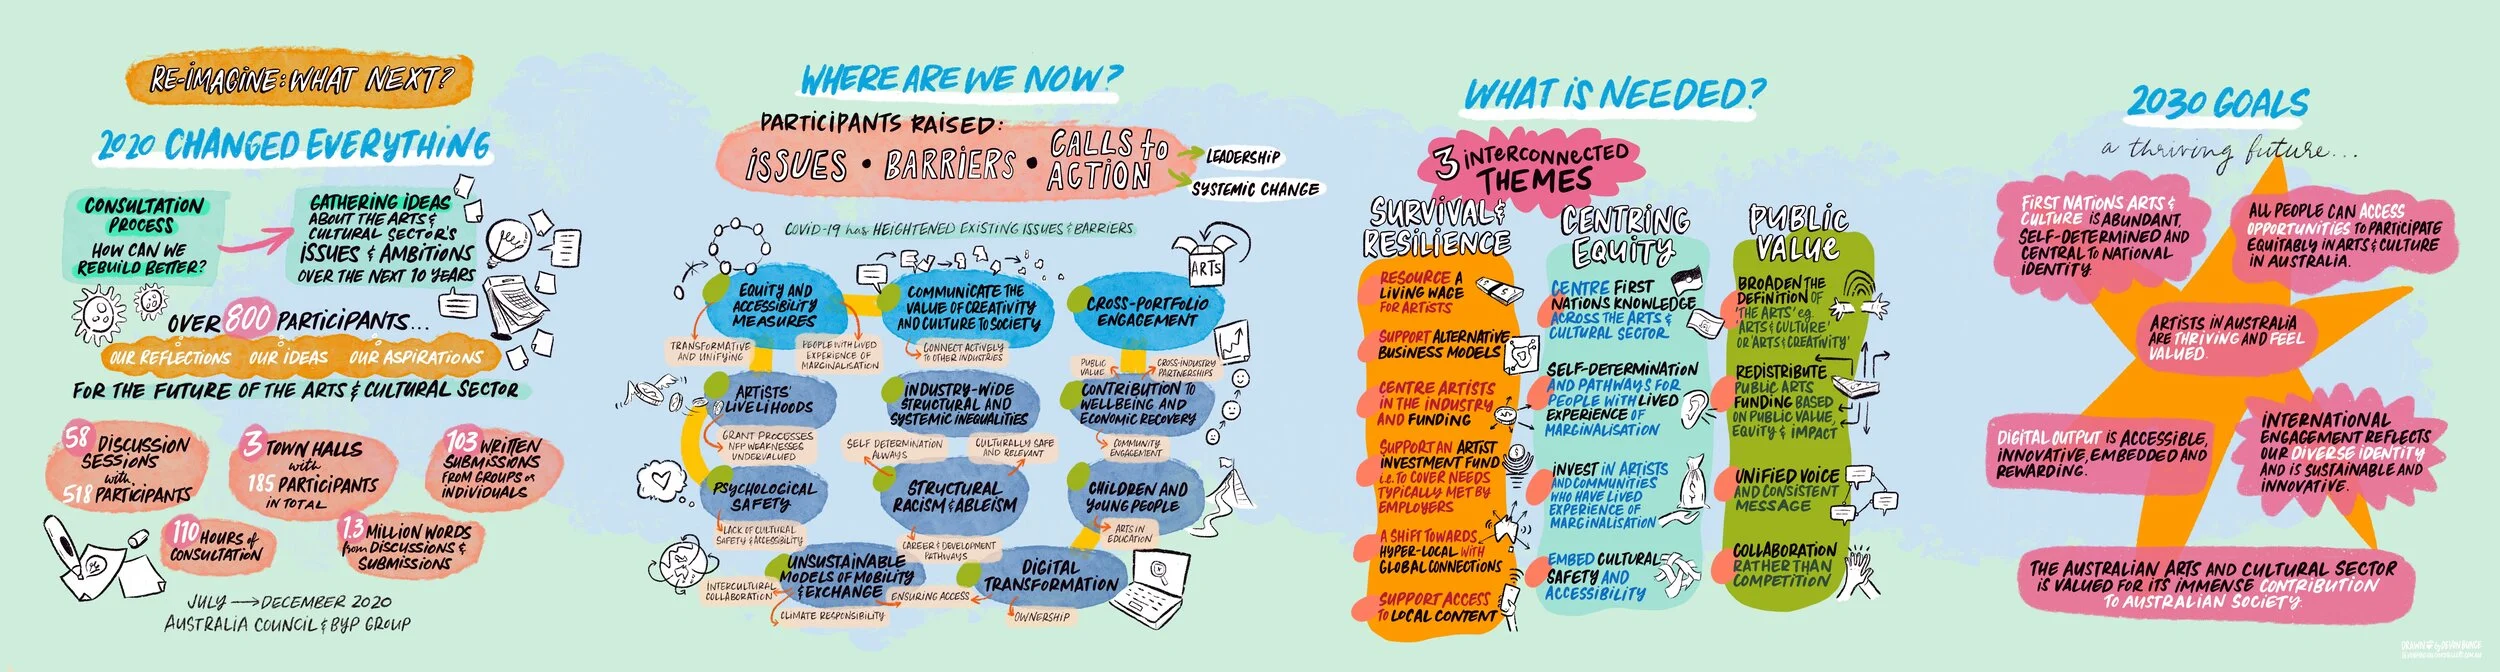 RE-IMAGINE: WHAT NEXT?
2020 CHANGED EVERYTHING
CONSULTATION
PROCESS
HOW CAN WE
REBUILD BETTER?
GATHERING IDEAS
ABOUT THE ARTS &
CULTURAL SECTOR'S
ISSUES & AMBITIONS
OVER THE NEXT 10 YEARS
OVER 800 PARTICIPANTS...
OUR REFLECTIONS OUR IDEAS OUR ASPIRATIONS
FOR THE FUTURE OF THE ARTS & CULTURAL SECTOR
58 DISCUSSION
SESSIONS
with
518 PARTICIPANTS
3 TOWN HALLS
with
185 PARTICIPANTS
IN TOTAL
103 WRITTEN
SUBMISSIONS
FROM GROUPS or
INDIVIDUALS
110 HOURS of
CONSULTATION
1.3 MILLION WORDS
from DISCUSSIONS &
SUBMISSIONS
JULY → DECEMBER 2020
AUSTRALIA COUNCIL & BYP GROUP
WHERE ARE WE NOW?
PARTICIPANTS RAISED:
ISSUES • BARRIERS • CALLS to
ACTION
LEADERSHIP
SYSTEMIC CHANGE
COVID-19 has HEIGHTENED EXISTING ISSUES & BARRIERS
ARTS
EQUITY AND
ACCESSIBILITY
MEASURES
TRANSFORMATIVE
AND UNIFYING
PEOPLE WITH LIVED
EXPERIENCE OF
MARGINALISATION
COMMUNICATE THE
VALUE OF CREATIVITY
AND CULTURE TO SOCIETY
CONNECT ACTIVELY
TO OTHER INDUSTRIES
CROSS-PORTFOLIO
ENGAGEMENT
PUBLIC
VALUE
CROSS-INDUSTRY
PARTNERSHIPS
ARTISTS'
LIVELIHOODS
GRANT PROCESSES
NFP WEAKNESSES
UNDERVALUED
INDUSTRY-WIDE
STRUCTURAL AND
SYSTEMIC INEQUALITIES
CONTRIBUTION TO
WELLBEING AND
ECONOMIC RECOVERY
COMMUNITY
ENGAGEMENT
SELF DETERMINATION
ALWAYS
CULTURALLY SAFE
AND RELEVANT
PSYCHOLOGICAL
SAFETY
LACK OF CULTURAL
SAFETY & ACCESSIBILITY
STRUCTURAL
RACISM & ABLEISM
CAREER & DEVELOPMENT
PATHWAYS
CHILDREN AND
YOUNG PEOPLE
ARTS IN
EDUCATION
UNSUSTAINABLE
MODELS OF MOBILITY
& EXCHANGE
INTERCULTURAL
COLLABORATION
CLIMATE RESPONSIBILITY
ENSURING ACCESS
DIGITAL
TRANSFORMATION
OWNERSHIP
WHAT IS NEEDED?
3 INTERCONNECTED
THEMES
SURVIVAL &
RESILIENCE
RESOURCE A
LIVING WAGE
FOR ARTISTS
SUPPORT ALTERNATIVE
BUSINESS MODELS
CENTRE ARTISTS
IN THE INDUSTRY
AND FUNDING
SUPPORT AN ARTIST
INVESTMENT FUND
i.e. TO COVER NEEDS
TYPICALLY MET BY
EMPLOYERS
A SHIFT TOWARDS
HYPER-LOCAL WITH
GLOBAL CONNECTIONS
SUPPORT ACCESS
TO LOCAL CONTENT
CENTRING
EQUITY
CENTRE FIRST
NATIONS KNOWLEDGE
ACROSS THE ARTS &
CULTURAL SECTOR.
SELF-DETERMINATION
AND PATHWAYS FOR
PEOPLE WITH LIVED
EXPERIENCE OF
MARGINALISATION
INVEST IN ARTISTS
AND COMMUNITIES
WHO HAVE LIVED
EXPERIENCE OF
MARGINALISATION
EMBED CULTURAL
SAFETY AND
ACCESSIBILITY
PUBLIC
VALUE
BROADEN THE
DEFINITION OF
'THE ARTS' eg.
'ARTS & CULTURE'
OR 'ARTS & CREATIVITY'
REDISTRIBUTE
PUBLIC ARTS
FUNDING BASED
ON PUBLIC VALUE,
EQUITY & IMPACT
UNIFIED VOICE
AND CONSISTENT
MESSAGE
COLLABORATION
RATHER THAN
COMPETITION
2030 GOALS
a thriving future...
FIRST NATIONS ARTS &
CULTURE IS ABUNDANT,
SELF-DETERMINED AND
CENTRAL TO NATIONAL
IDENTITY.
ALL PEOPLE CAN ACCESS
OPPORTUNITIES TO PARTICIPATE
EQUITABLY IN ARTS & CULTURE
IN AUSTRALIA.
ARTISTS IN AUSTRALIA
ARE THRIVING AND FEEL
VALUED.
DIGITAL OUTPUT IS ACCESSIBLE,
INNOVATIVE, EMBEDDED AND
REWARDING.
INTERNATIONAL
ENGAGEMENT REFLECTS
OUR DIVERSE IDENTITY
AND IS SUSTAINABLE AND
INNOVATIVE.
THE AUSTRALIAN ARTS AND CULTURAL SECTOR
IS VALUED FOR ITS IMMENSE CONTRIBUTION
TO AUSTRALIAN SOCIETY.
DEVON BUNCE